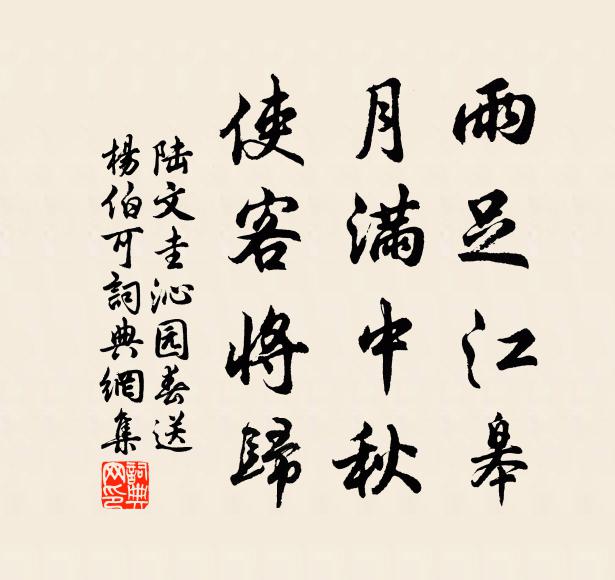 雨足江皋
月滿中秋
使客將歸
陆文圭沁园春送
楊伯可詞典網集
詞典网印